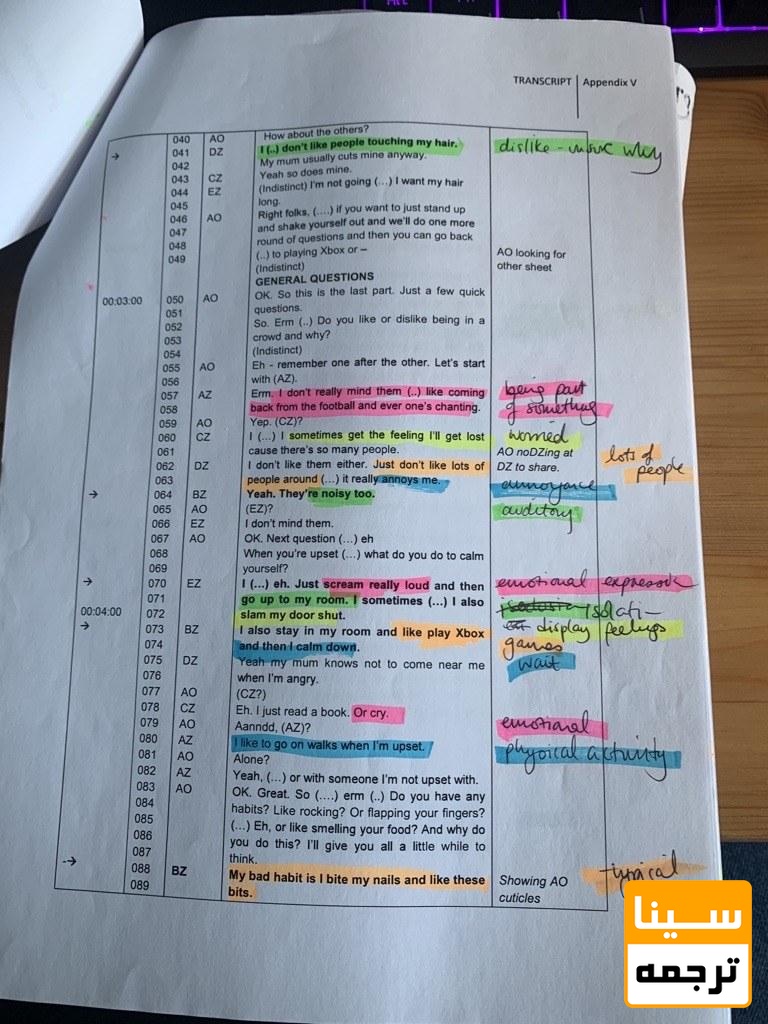 TRANSCRIPT | Appendix V
040 AO How about the others?
→ 041 DZ I (..) don't like people touching my hair. dislike - unsure why
042 My mum usually cuts mine anyway.
043 CZ Yeah so does mine.
044 EZ (Indistinct) I'm not going (...) I want my hair
045 long.
046 AO Right folks, (....) if you want to just stand up
047 and shake yourself out and we'll do one more
048 round of questions and then you can go back AO looking for
049 (..) to playing Xbox or – other sheet
(Indistinct)
GENERAL QUESTIONS
00:03:00 050 AO OK. So this is the last part. Just a few quick
051 questions.
052 So. Erm (..) Do you like or dislike being in a
053 crowd and why?
054 (Indistinct)
055 AO Eh - remember one after the other. Let's start
056 with (AZ).
057 AZ Erm. I don't really mind them (..) like coming being part
058 back from the football and ever one's chanting. of something
059 AO Yep. (CZ)?
060 CZ I (...) I sometimes get the feeling I'll get lost worried
061 cause there's so many people. AO noDZing at
062 DZ I don't like them either. Just don't like lots of DZ to share. lots of
063 people around (...) it really annoys me. annoyance people
→ 064 BZ Yeah. They're noisy too.
065 AO (EZ)? auditory
066 EZ I don't mind them.
067 AO OK. Next question (...) eh
068 When you're upset (...) what do you do to calm
069 yourself?
→ 070 EZ I (...) eh. Just scream really loud and then emotional expression
071 go up to my room. I sometimes (...) I also
00:04:00 072 slam my door shut. display feelings
→ 073 BZ I also stay in my room and like play Xbox games
074 and then I calm down. wait
075 DZ Yeah my mum knows not to come near me
076 when I'm angry.
077 AO (CZ?)
078 CZ Eh. I just read a book. Or cry. emotional
079 AO Aanndd, (AZ)?
080 AZ I like to go on walks when I'm upset. physical activity
081 AO Alone?
082 AZ Yeah, (...) or with someone I'm not upset with.
083 AO OK. Great. So (....) erm (..) Do you have any
084 habits? Like rocking? Or flapping your fingers?
085 (...) Eh, or like smelling your food? And why do
086 you do this? I'll give you all a little while to
087 think.
→ 088 BZ My bad habit is I bite my nails and like these Showing AO typical
089 bits. cuticles
سینا
ترجمه